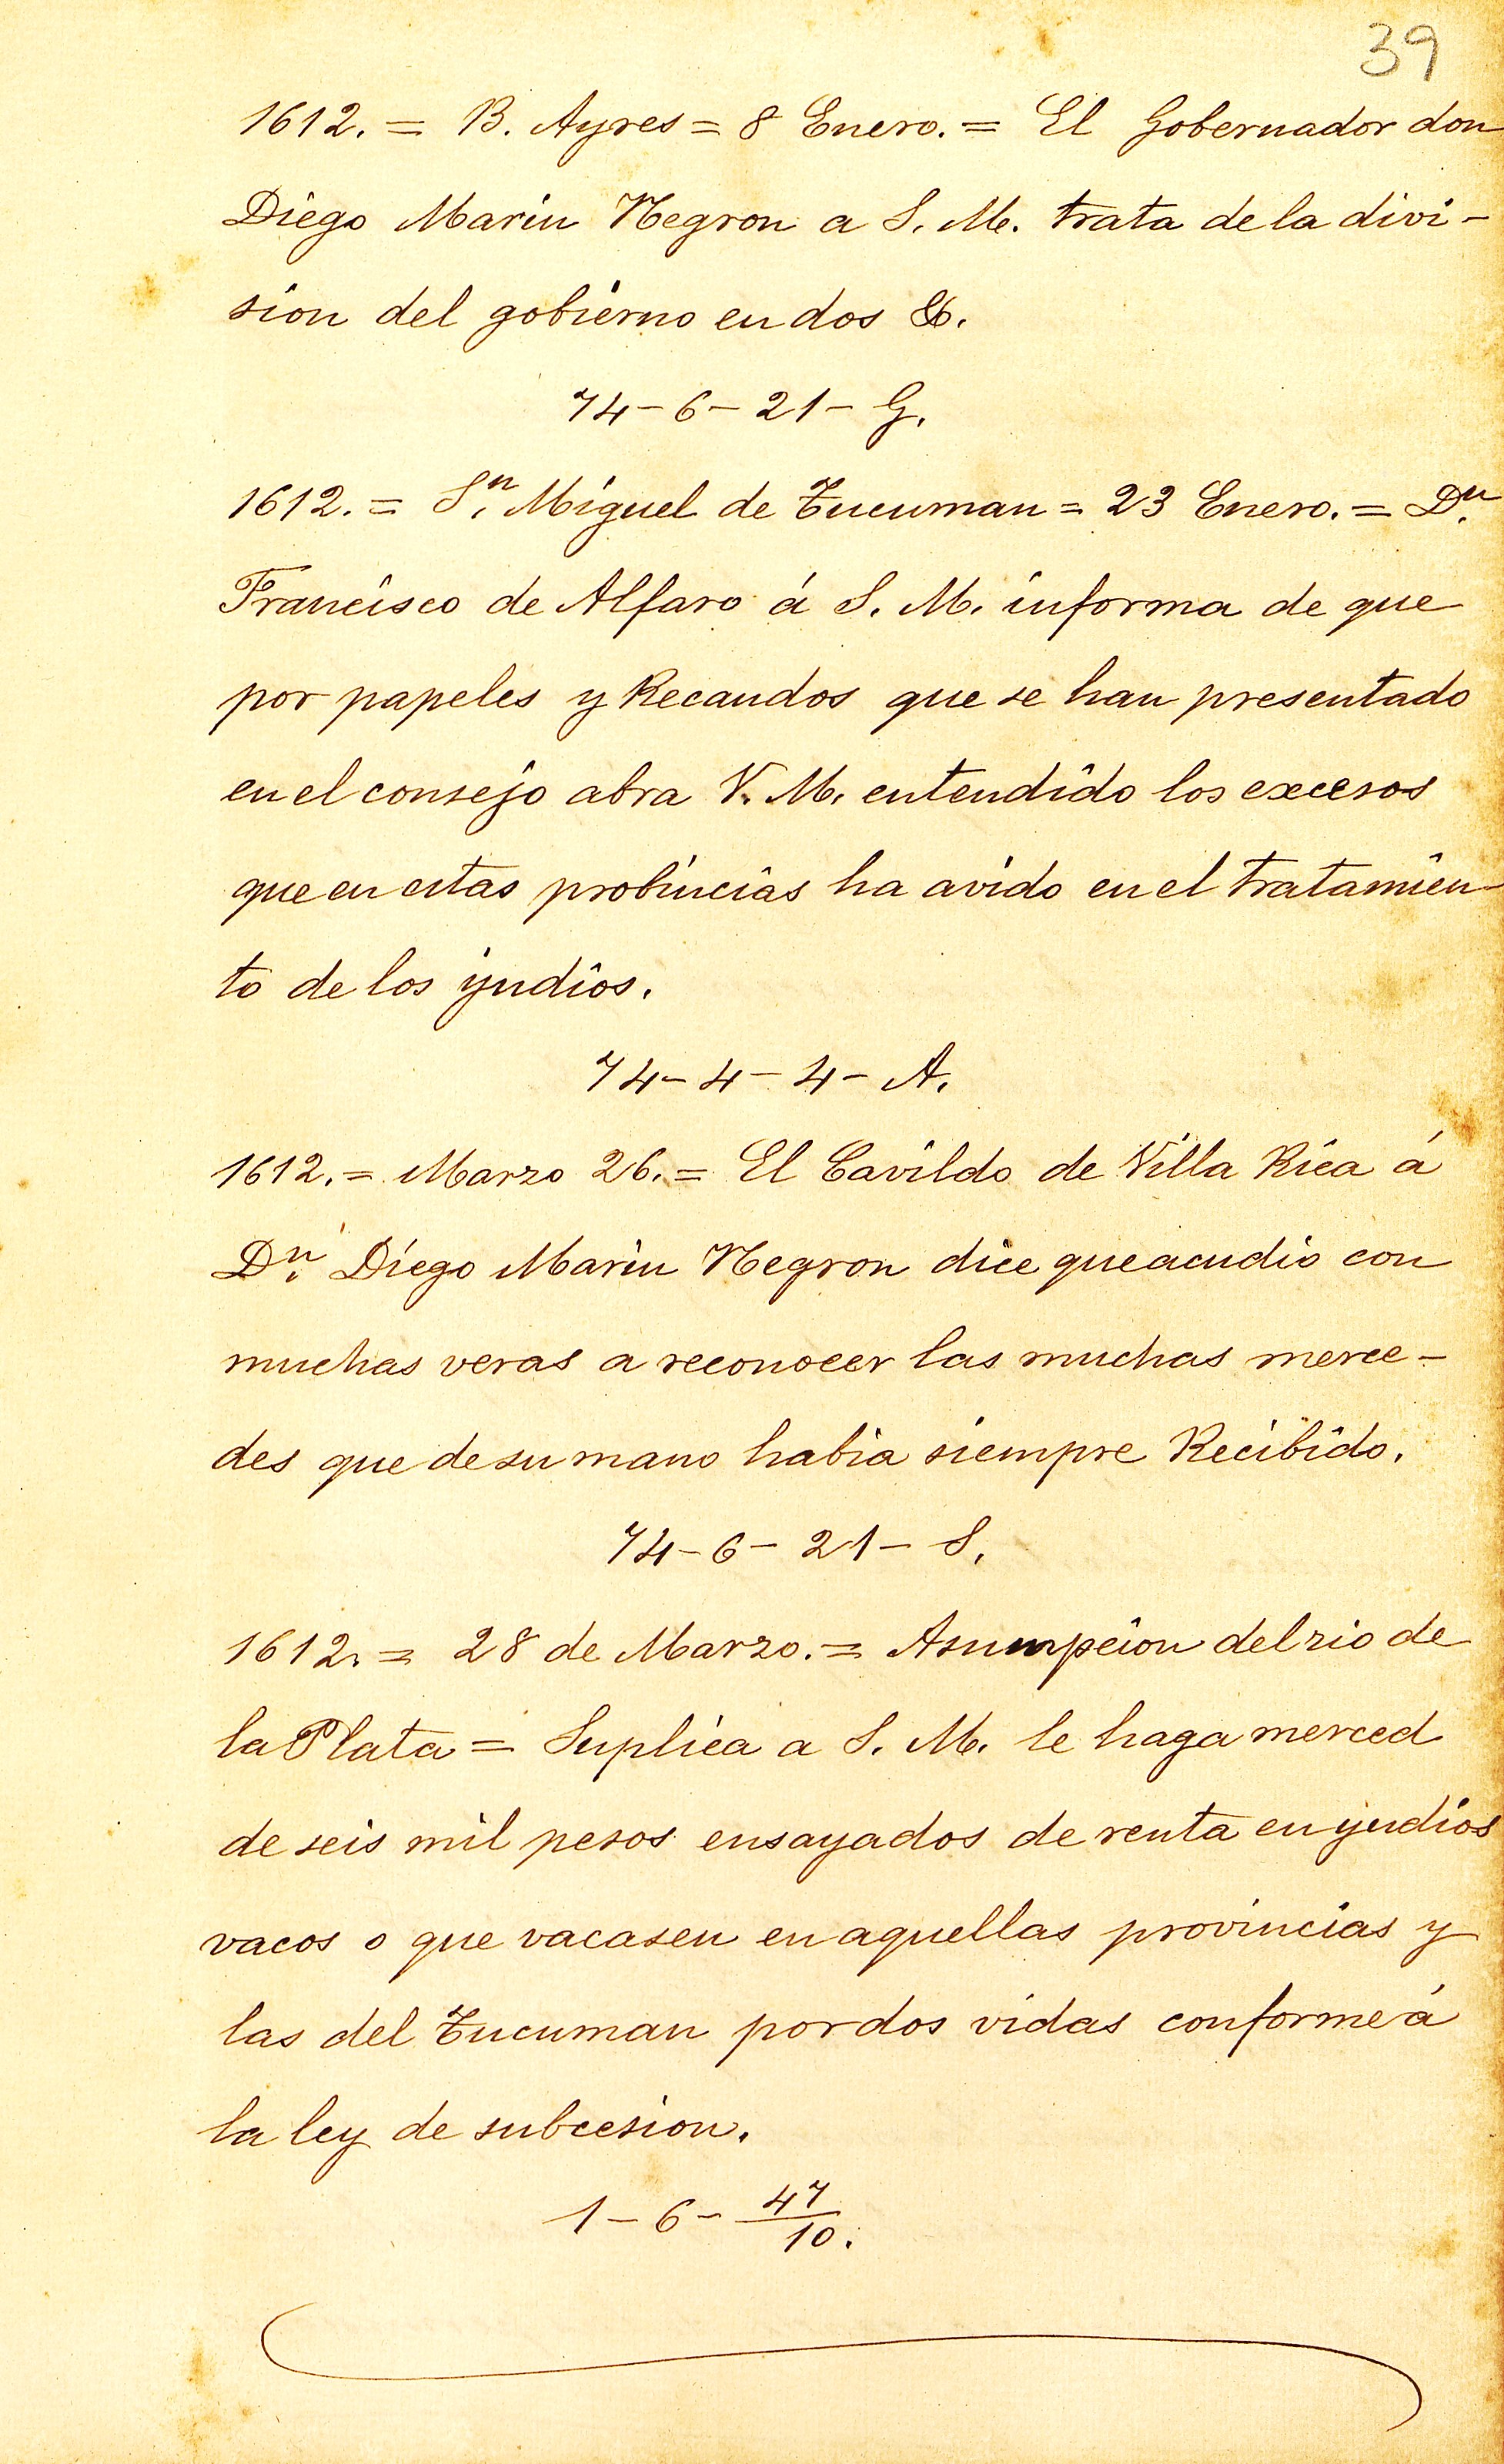 39
1612. = B. Ayres = 8 Enero. = El Gobernador don
Diego Marin Negron a S. M. trata de la divi-
sion del gobierno en dos &.
74-6-21-G.
1612. = S.n Miguel de Tucuman = 23 Enero. = D.n
Francisco de Alfaro á S. M. informa de que
por papeles y Recaudos que se han presentado
en el consejo abra V. M. entendido los excesos
que en estas probincias ha avido en el tratamien-
to de los yndios.
74-4-4-A.
1612. = Marzo 26. = El Cavildo de Villa Rica á
D.n Diego Marin Negron dice que acudio con
muchas veras a reconocer las muchas merce-
des que de su mano habia siempre Recibido.
74-6-21-S.
1612. = 28 de Marzo. = Asumpcion del rio de
la Plata = Suplica a S. M. le haga merced
de seis mil pesos ensayados de renta en yndios
vacos o que vacasen en aquellas provincias y
las del Tucuman por dos vidas conforme á
la ley de subcesion.
1-6-47/10.